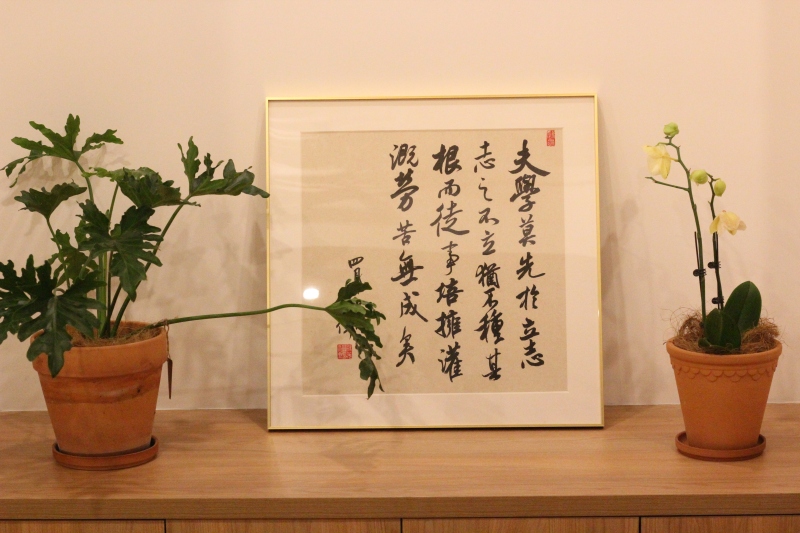 夫學莫先於立志
志之不立猶不種其
根而徒事培擁灌
溉勞苦無成矣
四